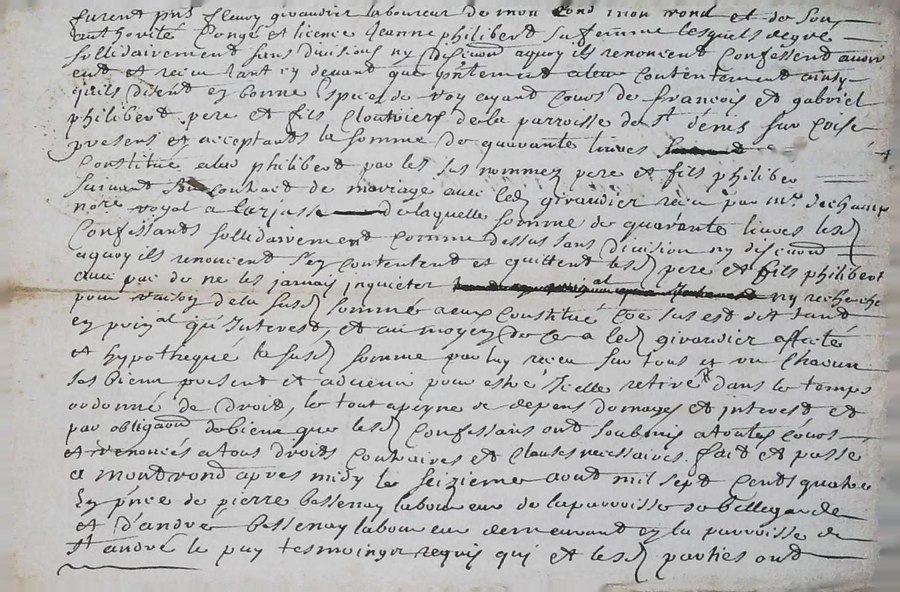 furent pnts fleury giraudier laboureur de mon rond mon rond et de son
authorité Congé et licence Jeanne philibert sa femme lesquels de gré
sollidairement sans division ny discuon aquoy ils renoncent Confessent avoir
eut et receu tant cy devant que pntement a leur Contentement ainsy
quils disent en bonne espiece de roy ayant Cours de francois et gabriel
philibert pere et fils Cloutriers de la parroisse de St denis sur Coise
presens et acceptants la somme de quarante livres
Constitue a lad philibert par les sus nommez pere et fils philiber
suivant Contract de mariage avec led giraudier receu par me dechamp
nore royal a Larjasse de laquelle somme de quarante livres lesd
Confessants sollidairement Comme dessus sans division ny discuon
aquoy ils renoncent s'en Contentent et quittent lesd pere et fils philibert
avec pac de ne les jamais inquieter ny recherche
pour raison de la susd somme a eux Constitue Co'e sus est dit tant
en prinal qu'Interest, et au moyen de Ce a led giraudier affecté
et hypothequé la susd somme par luy receu sur tous et un Chacun
ses biens present et advenir pour estre Icelle retiré dans le temps
ordonné de droit, le tout a peyne de depens domages et interest et
par obligaon de biens que lesd Confessans ont soubmis a toutes Cours
et renoncés a tous droits Contraires et Clauses necessaires. fait et passé
a montrond apres midy le seizieme aout mil sept Cents quatre
En pnce de pierre bassenay laboureur de la parroisse de bellegarde
et d'andre bassenay laboureur demeurant en la parroisse de
St andré le puy tesmoings requis qui et lesd parties ont